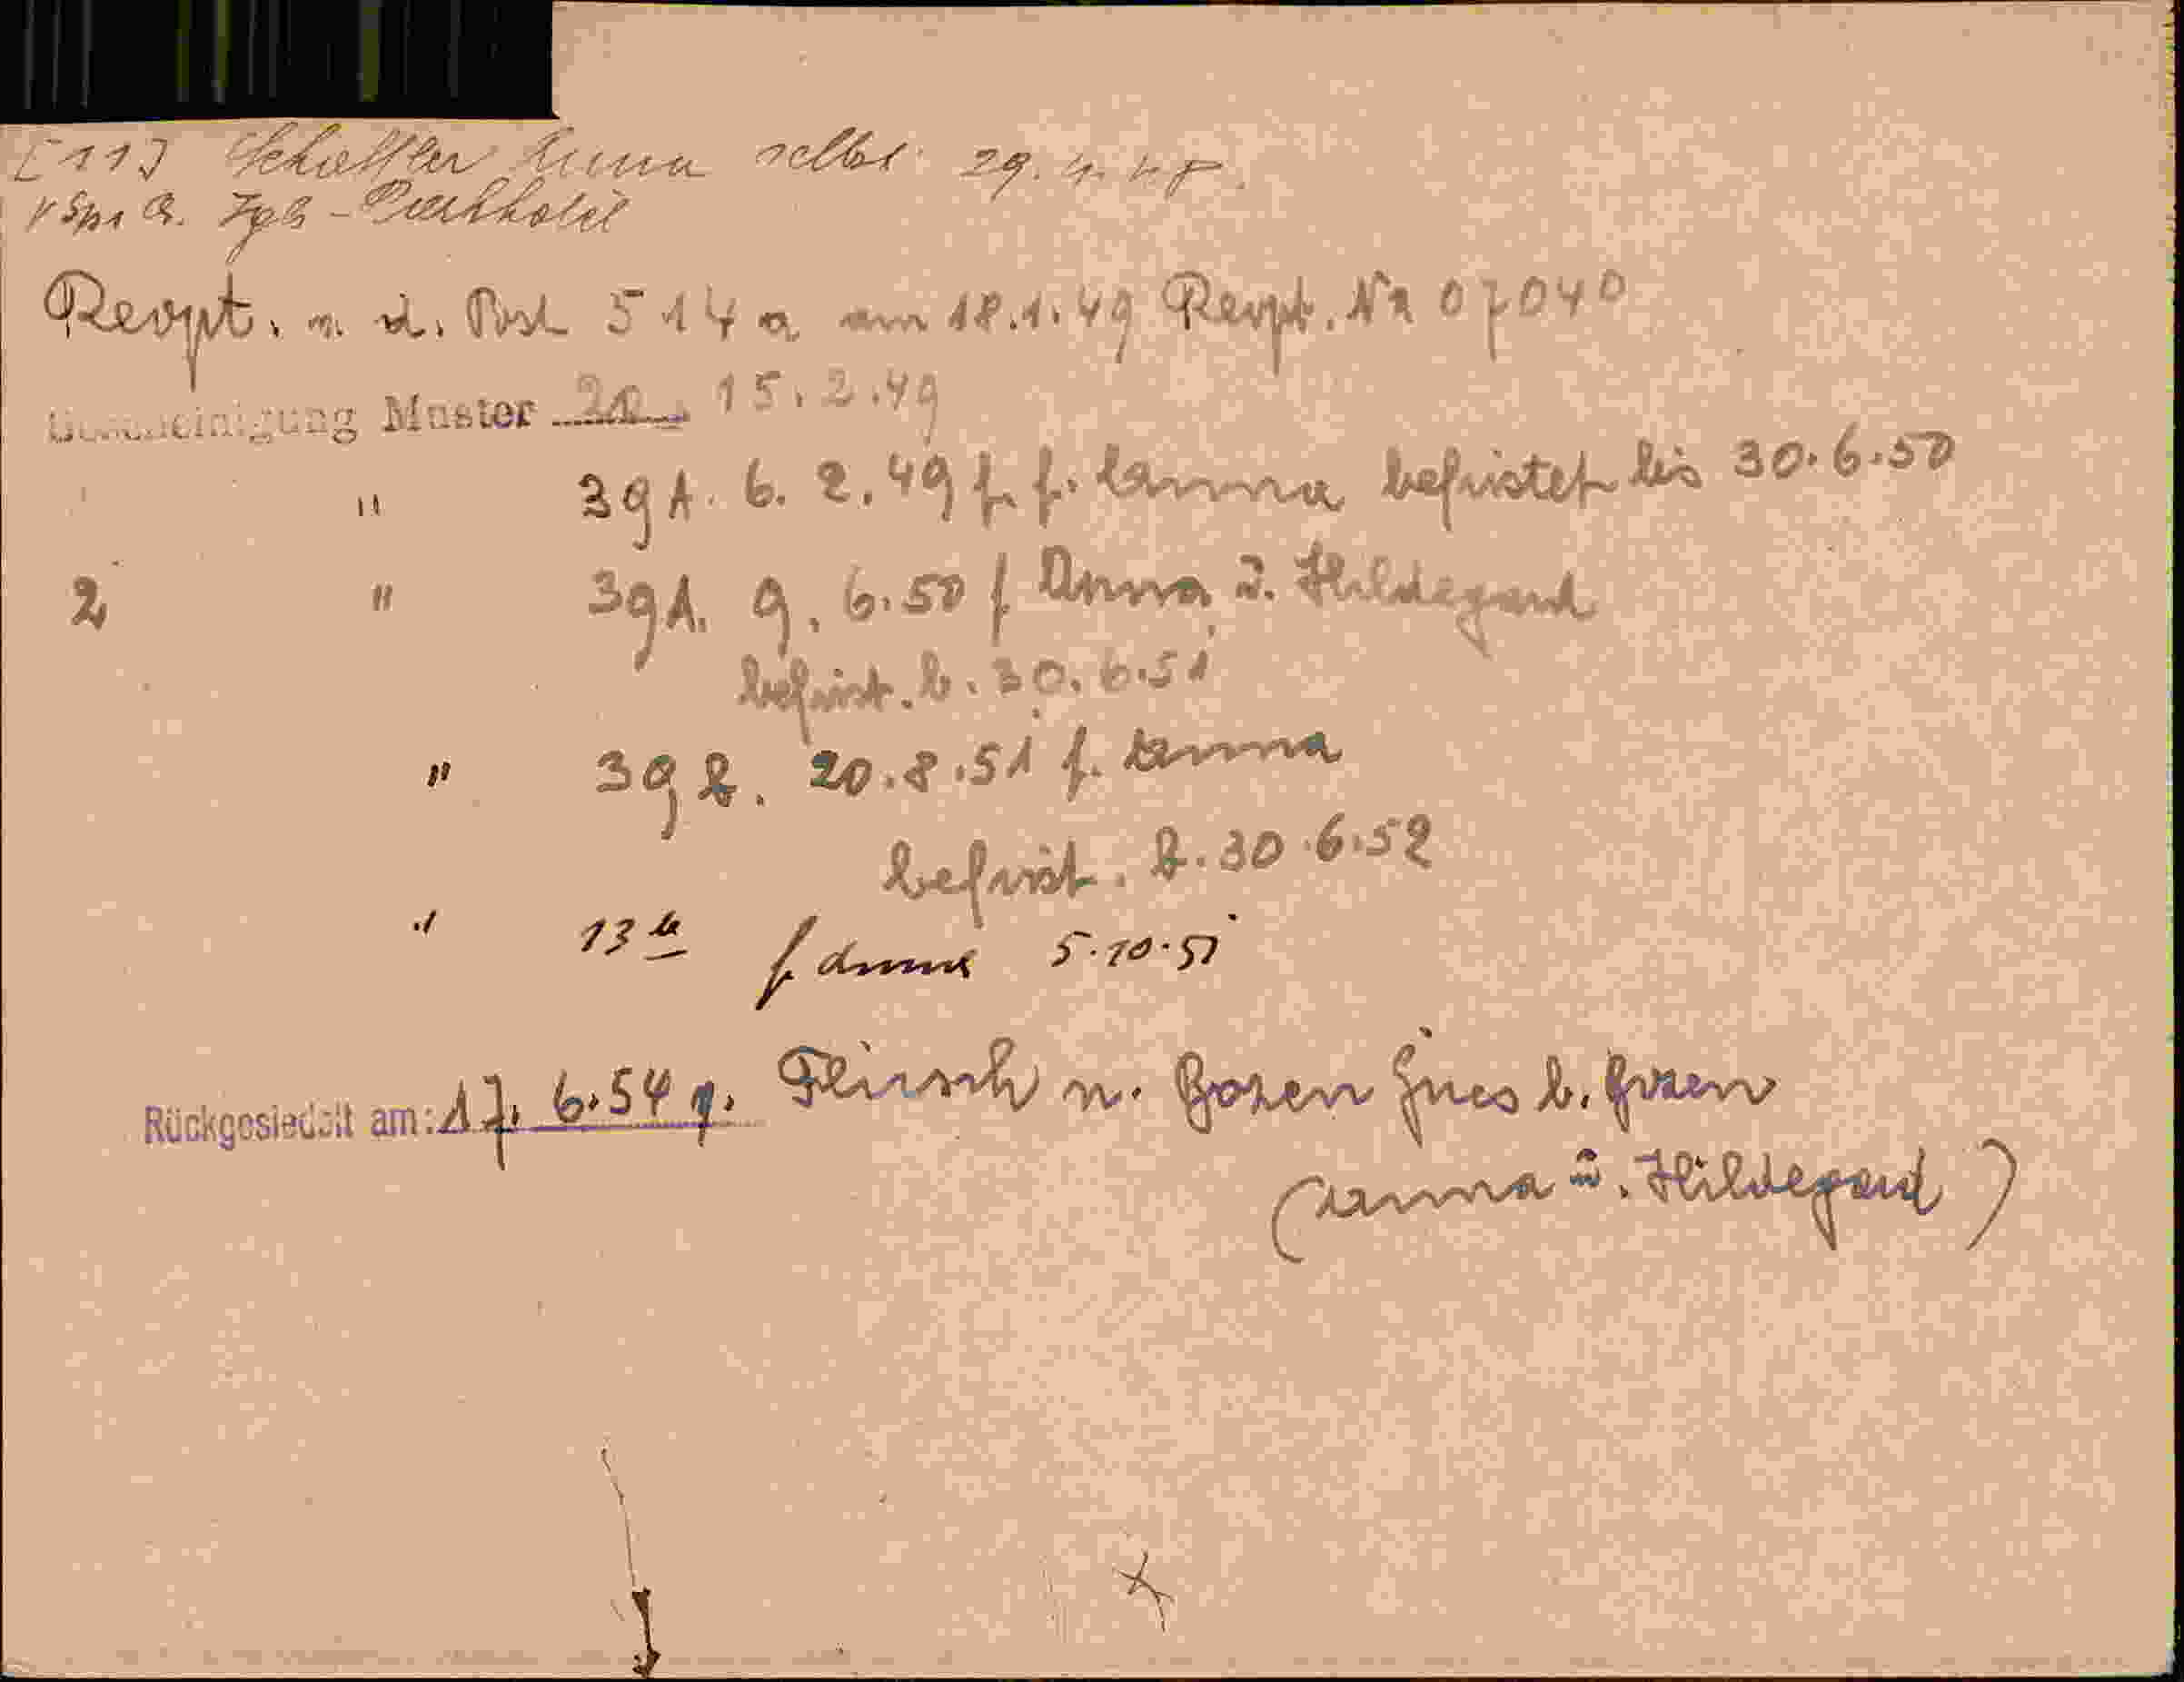 [11] Anna selbst 29. 4. 48.
Reopt. n. d. Post 514 a am 18.1.49 Reopt. Nr 07040
Bescheinigung Muster 15.2.49
" 39A. 6. 2.49 f. f. Anna befristet bis 30.6.50
2 " 39A. 9. 6.50 f Anna u. Hildegard
befrist. b. 30. 6.51
" 39 20.8.51 f. Anna
befrist. b. 30.6.52
" 13 f Anna 5.10.51
Rückgesiedelt am: 17. 6.54 n. Bozen b. Bozen
(Anna u. Hildegard)